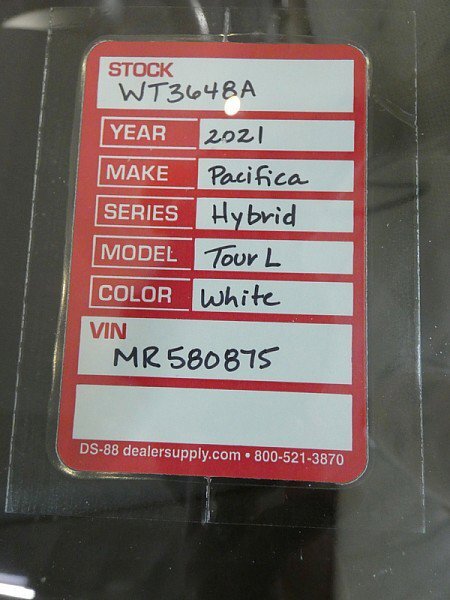 STOCK
WT3648A
YEAR 2021
MAKE Pacifica
SERIES Hybrid
MODEL Tour L
COLOR White
VIN
MR580875
DS-88 dealersupply.com • 800-521-3870